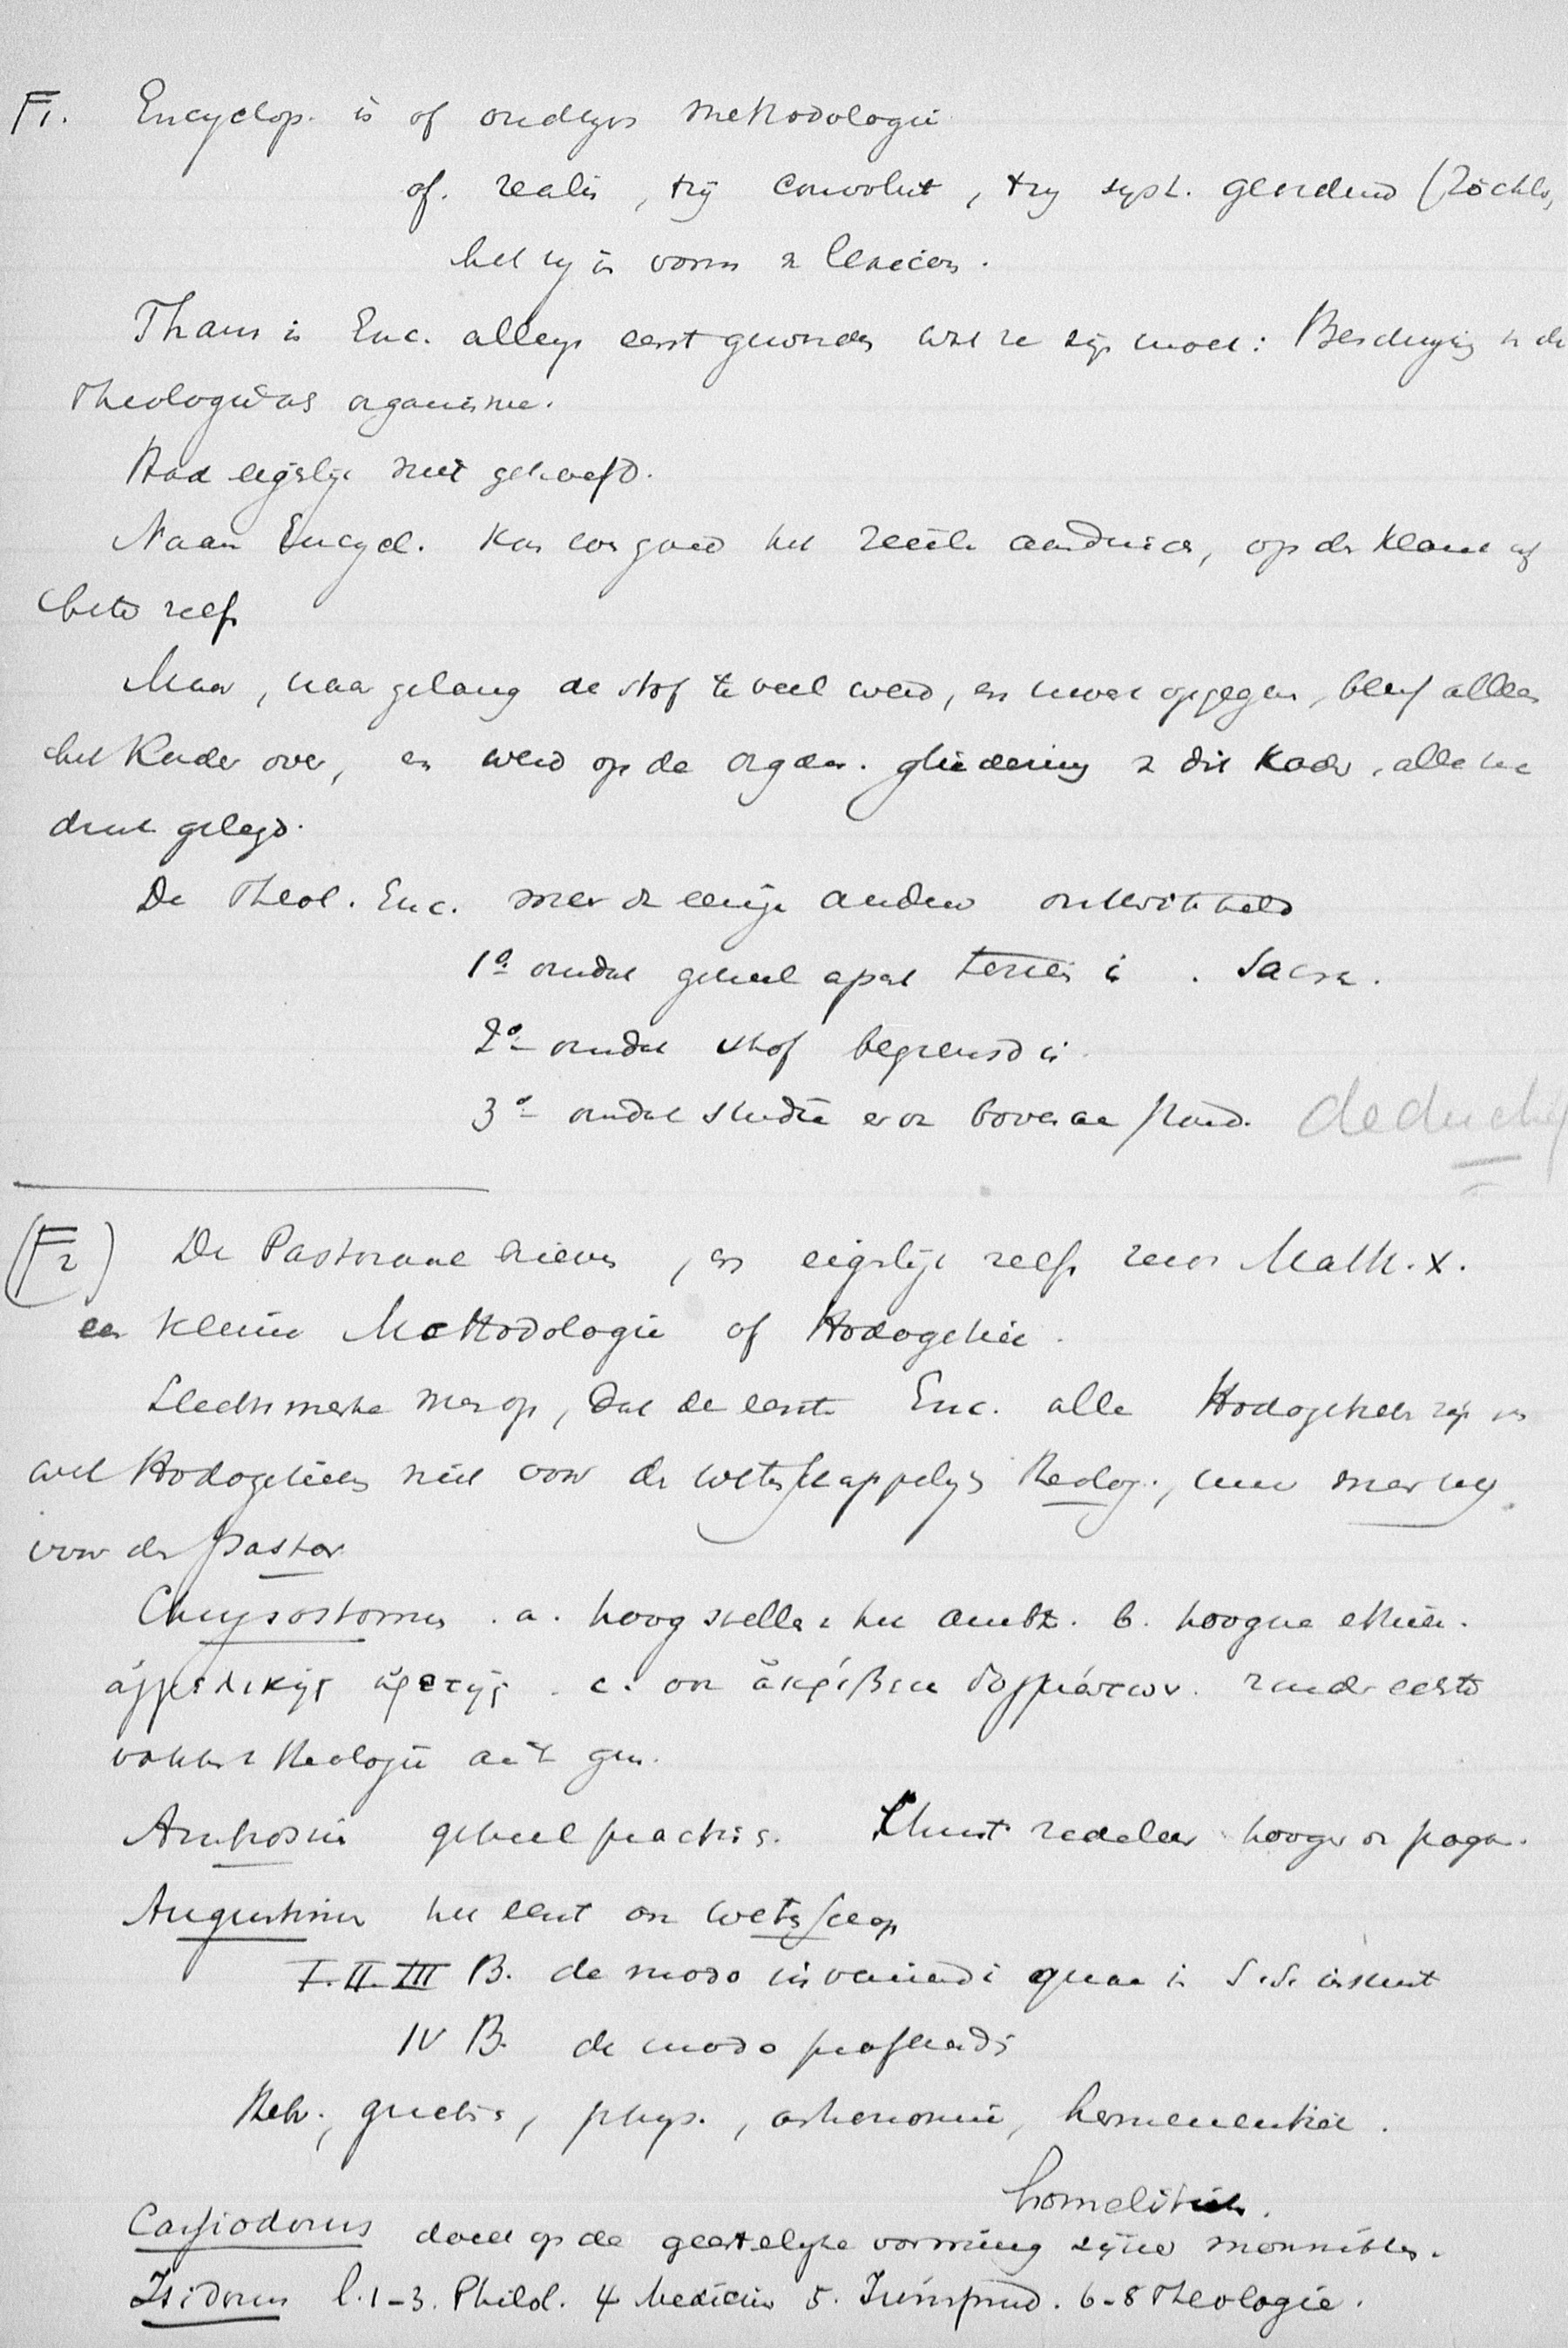 F1. Encyclop. is of oudtijds methodologie
of. realis, tzij convolut, tzij syst. geordend (Zöckler,
hetzij in vorm v lexicon.
Thans is Enc. allengs eerst geworden wat ze zijn moet: Beschrijving v de
Theologie als organisme.
Had eigelijk niet gehoefd.
Naam Encycl. kon even goed het reëele aanduiden, op de klank af
beter zelfs
Maar, naar gelang de stof te veel werd, en meer opgegeven, bleef alleen
het Kader over, en werd op de organ. gliedering v dit Kader, alle na
druk gelegd.
De Theol. Enc. meer dan eenige andere ontwikkeld
1º omdat geheel apart terrein is. Sacra.
2º omdat stof begrensd is.
3º omdat studie er van bovenaan stond. deductief
(F2) De Pastorale brieven, en eigelijk zelfs reeds Matth. X.
een kleine Methodologie of Hodogetiek.
Slechts merke men op, dat de eerste Enc. alle Hodogetiek zijn en
wel Hodogetiek niet voor de wetenschappelijk theolog., maar meer nog
voor de pastor
Chrysostomus. a. hoog stellen v het ambt. b. hoogere ethiek.
ἀγγελικῆς ἀρετῆς. c. on ἀκρίβεια δογμάτων. zonder eerste
vakken v theologie aan te geven.
Ambrosius geheel practisch. Christ. zedeleer hooger dan pagan.
Augustinus het eerst een wetenschap
I. II. III B. de modo inveniendi quae in S.S. insunt
IV B. de modo proferendi
Hebr., grieksch, phys., astronomie, hermeneutiek.
homelitiek.
Cassiodorus doelt op de geestelijke vorming zijner monniken.
Isidorus l. 1-3. Philol. 4 Medicin 5. Jurisprud. 6-8 Theologie.